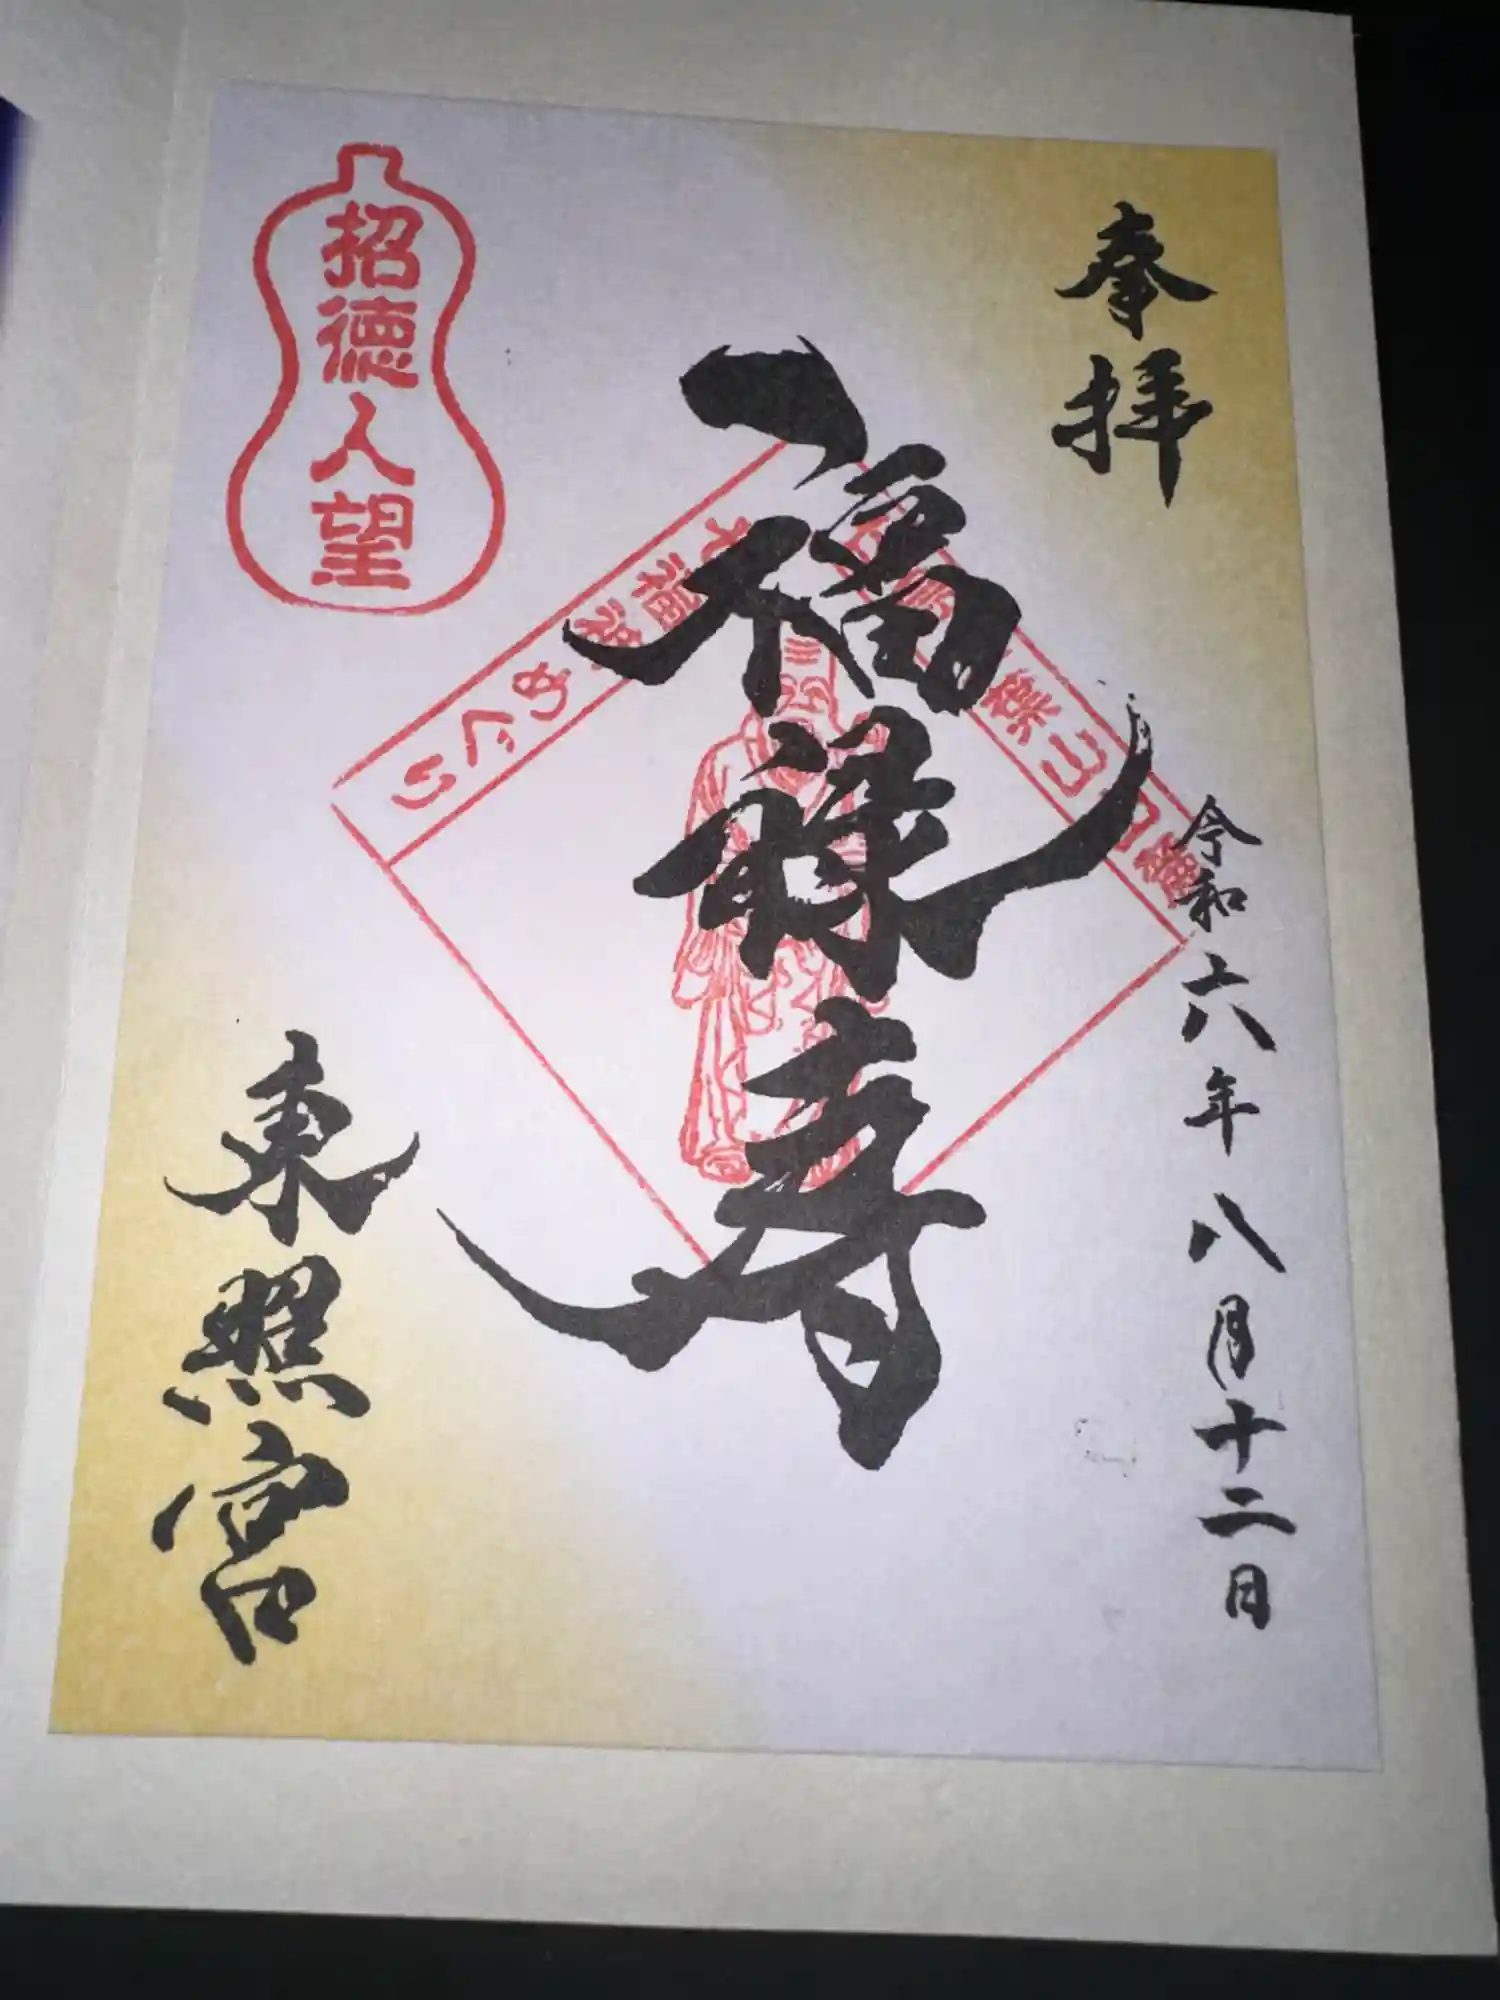 奉拝
令和六年八月十二日
福禄寿
七福神めぐり
招徳人望
東照宮